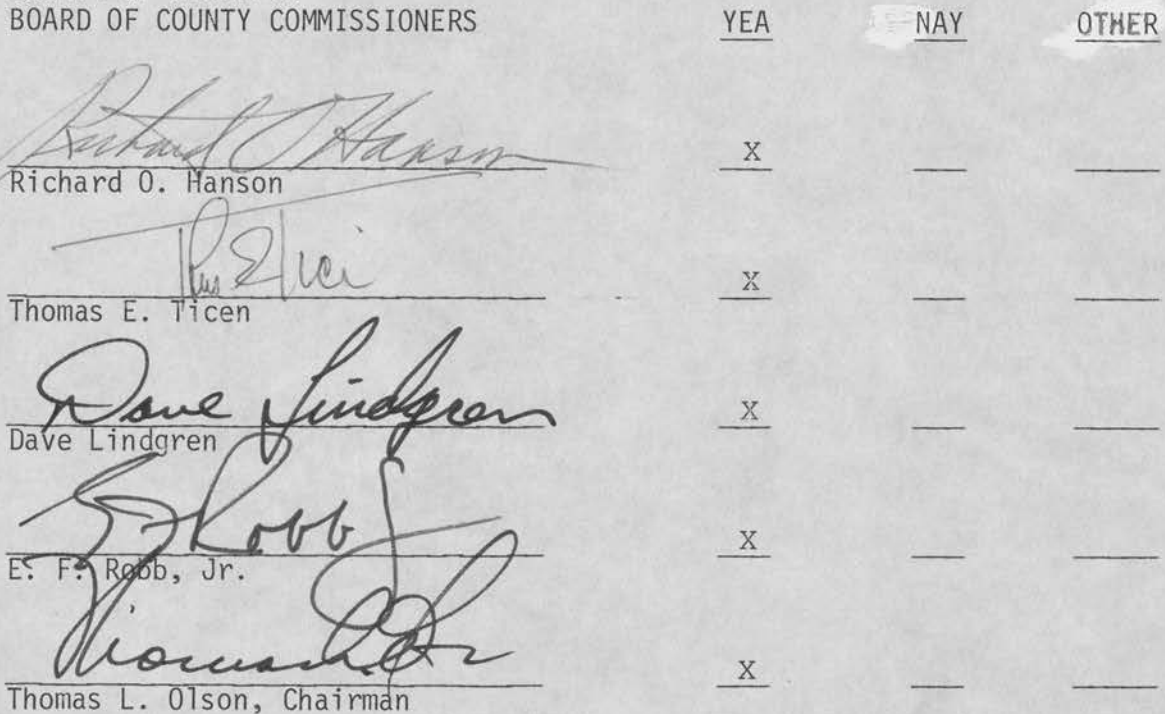 BOARD OF COUNTY COMMISSIONERS YEA NAY OTHER
Richard O Hanson X
Richard O. Hanson
Thos E Tici X
Thomas E. Ticen
Dave Lindgren X
Dave Lindgren
E F Robb Jr X
E. F. Robb, Jr.
Thomas L. Olson X
Thomas L. Olson, Chairman